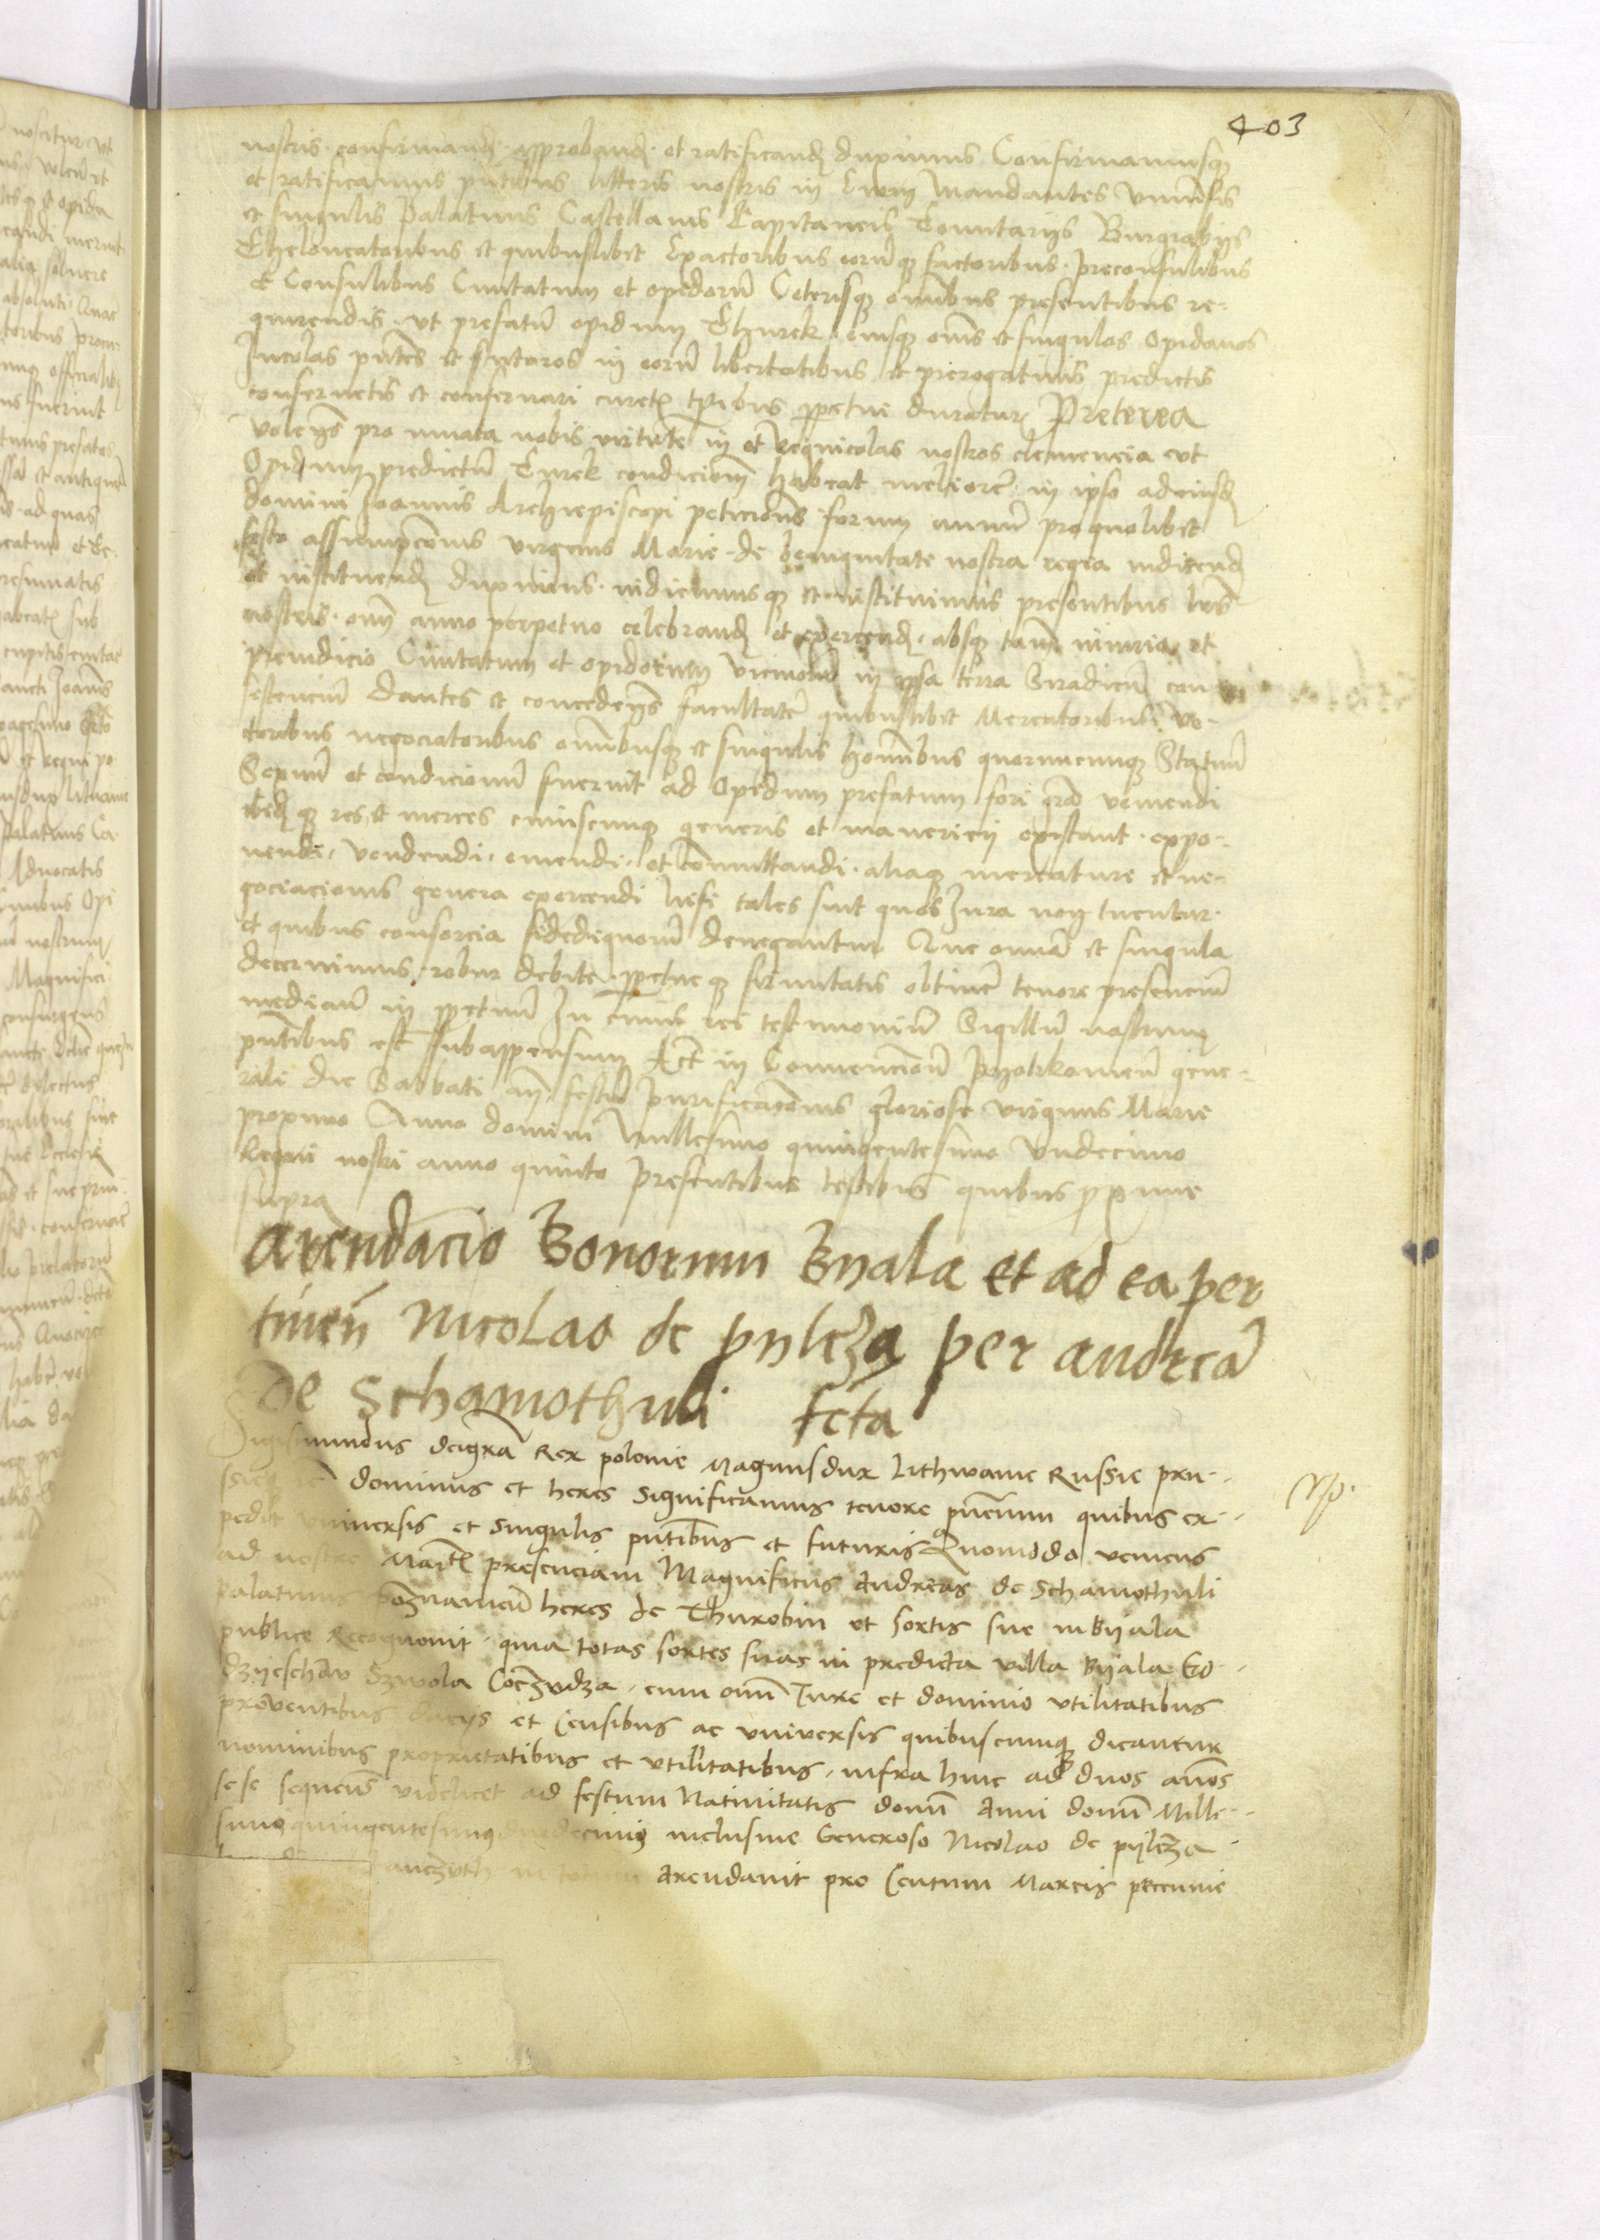 403
nostris confirmand approband et ratificand duximus Confirmamusq
et ratificamus pntibus litteris nostris in Mandantes Universis
et singulis Palatinis Castellanis Capitaneis Tenutariis Burgrabiis
Theloneatoribus et quibuslibet Exactoribus eorumq factoribus preconsulibus
et Consulibus Civitatum et opidorum Ceterisq omnibus presentibus re-
quirendis ut prefatum opidum Thurek eiusq omnes et singulos opidanos
Incolas pntes et futuros in eorum libertatibus et prerogativis predictis
conservetis et conservari curetis tpribus ppetue duratur Preterea
Volentes pro innata nobis virtute in et Regnicolas nostros clemencia ut
Opidum predictum Turek condicionem habeat meliorem in ipso ad eiusd
domini Joannis Archiepiscopi peticionem forum annuum pro quolibet
festo assumpcionis virginis Marie de benignitate nostra regia indicend
et instituend duximus indicimusq et instituimus presentibus lris
nostris omni anno perpetuo celebrand et exercend absq tamen iniuria et
preiudicio Civitatum et opidorum vicinorum in ipsa terra Siradien con
sistencium Dantes et concedentes facultatem quibuslibet Mercatoribus ve-
ctoribus negociatoribus omnibusq et singulis hominibus quorumcumq Statuum
Sexuum et condicionum fuerint ad Opidum prefatum fori gra veniendi
ibidq res et merces cuiuscumq generis et maneriei existant expo-
nendi vendendi emendi et commutandi aliaq mercature et ne-
gociacionis genera exercendi nisi tales sint quos Jura non tuentur
et quibus consorcia fidedignorum denegantur Que omnia et singula
decernimus robur debite ppetueq firmitatis obtinere tenore presencium
mediante in ppetuum In cuius rei testimonium Sigillum nostrum
pntibus est subappensum Act in Convencione Pyotrkovien gene-
rali die Sabbati an festum Purificacionis gloriose virginis Marie
proximo Anno domini Millesimo quingentesimo Undecimo
Regni nostri anno quinto Presentibus testibus quibus pxime
supra
Arendacio Bonorum Byala et ad ea per
tinen Nicolao de pylcza per andream
de Schamothuli fcta
Sigismundus deigra Rex polonie Magnusdux Lithwanie Russie pru-
sieq dominus et heres Significamus tenore pncium quibus ex-
pedit universis et singulis pntibus et futuris Quomodo veniens
ad nostre Maiestatis presenciam Magnificus Andreas de Schamothuli
palatinus Poznanien heres de Thurobin et sortis sue in Byala
publice Recognovit quia totas sortes suas in predicta villa Byala Go-
dzyeschow Dzwola Coczudza cum omni Jure et dominio utilitatibus
proventibus daciis et Censibus ac universis quibuscumq dicantur
nominibus proprietatibus et utilitatibus infra hinc ad duos annos
sese sequens videlicet ad festum Nativitatis domi Anni domi Mille-
simoquingentesimoduodecimo inclusive Generoso Nicolao de pylcza
Lanczuth Arendavit pro Centum Marcis peccunie